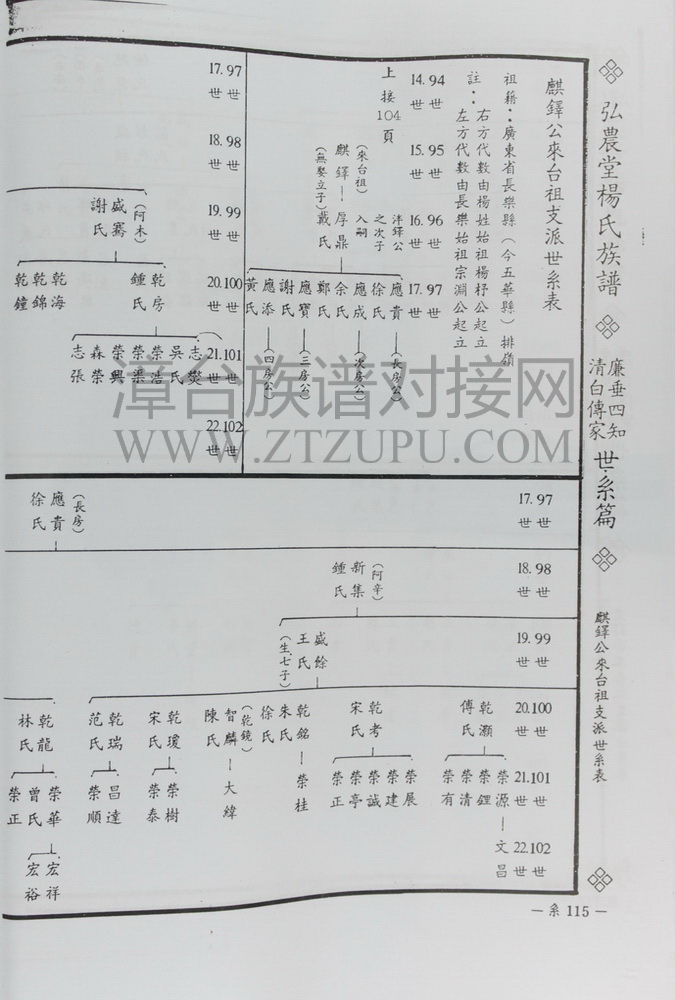 弘農堂楊氏族譜
廉垂四知
清白傳家
世系篇
麒鐸公來台祖支派世系表
麒鐸公來台祖支派世系表
祖籍：廣東省長樂縣（今五華縣）排嶺
註：右方代數由楊姓始祖楊杼公起立
左方代數由長樂始祖宗淵公起立
14.94世世
15.95世世
16.96世世
17.97世世
上接104頁
（來台祖）
麒鐸
（無娶立子）
洋鐸公之次子入嗣
厚鼎
戴氏
應貴
徐氏
（長房公）
應成
余氏
鄭氏
（次房公）
應寶
謝氏
（三房公）
應添
黃氏
（四房公）
17.97世世
18.98世世
19.99世世
20.100世世
21.101世世
22.102世世
（阿木）
盛騫
謝氏
乾房
鍾氏
乾海
乾錦
乾鐘
志焚
吳氏
榮浩
榮渠
榮興
森榮
志張
17.97世世
18.98世世
19.99世世
20.100世世
21.101世世
22.102世世
（長房）
應貴
徐氏
（阿辛）
新集
鍾氏
盛餘
王氏
（生七子）
乾灝
傅氏
乾考
宋氏
乾銘
朱氏
徐氏
（乾鏡）
智麟
陳氏
乾瓊
宋氏
乾瑞
范氏
乾龍
林氏
榮源
榮鋰
榮清
榮有
榮展
榮建
榮誠
榮亭
榮正
榮桂
大緯
榮樹
榮泰
昌達
榮順
榮華
曾氏
榮正
文昌
宏祥
宏裕
漳台族谱对接网
WWW.ZTZUPU.COM
—系115—